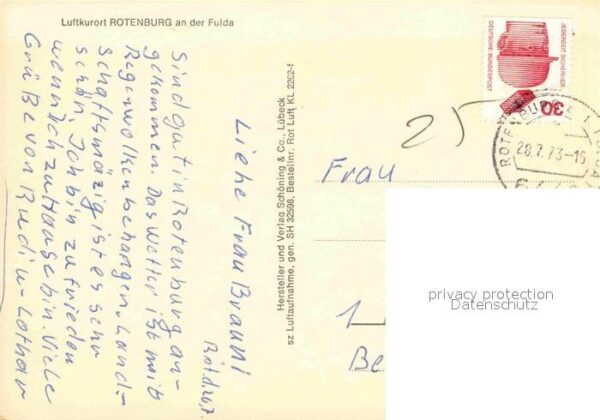 Luftkurort ROTENBURG an der Fulda
Liebe Frau Braun!
Rot.d.26.7.
Sind gut in Rotenburg an-
gekommen. Das Wetter ist meist
Regenwolkenbehangen. Land-
schaftsmäzig ist es sehr
schön. Ich bin zufrieden
wenn ich zu Hause bin. Viele
Grüße von Rudi u- Lothar
Hersteller und Verlag Schöning & Co., Lübeck
sz Luftaufnahme, gen. SH 32598, Bestellnr. Rot Luft KL 2262-f
25
JEDERZEIT SICHERHEIT
DEUTSCHE BUNDESPOST
30
ROTENBURG
FULDA
28.7.73-16
Frau
1
Be
privacy protection
Datenschutz